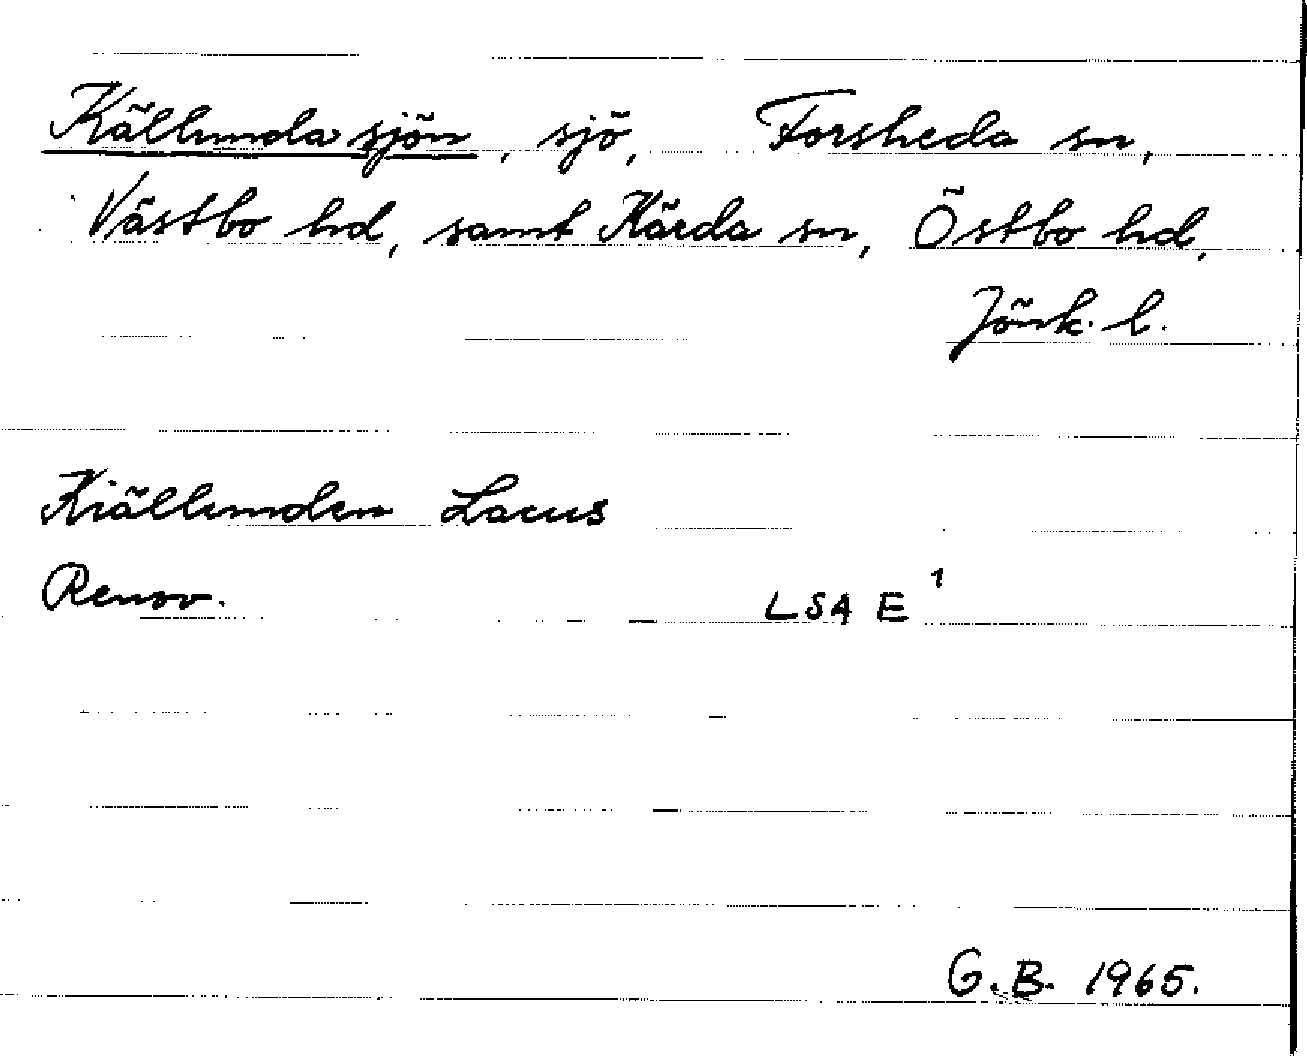 Källundasjön, sjö, Forsheda sn,
Västbo hd, samt Kärda sn, Östbo hd,
Jönk. l.
Kiällunden Lacus
Renov. LSA E 1
G.B. 1965.